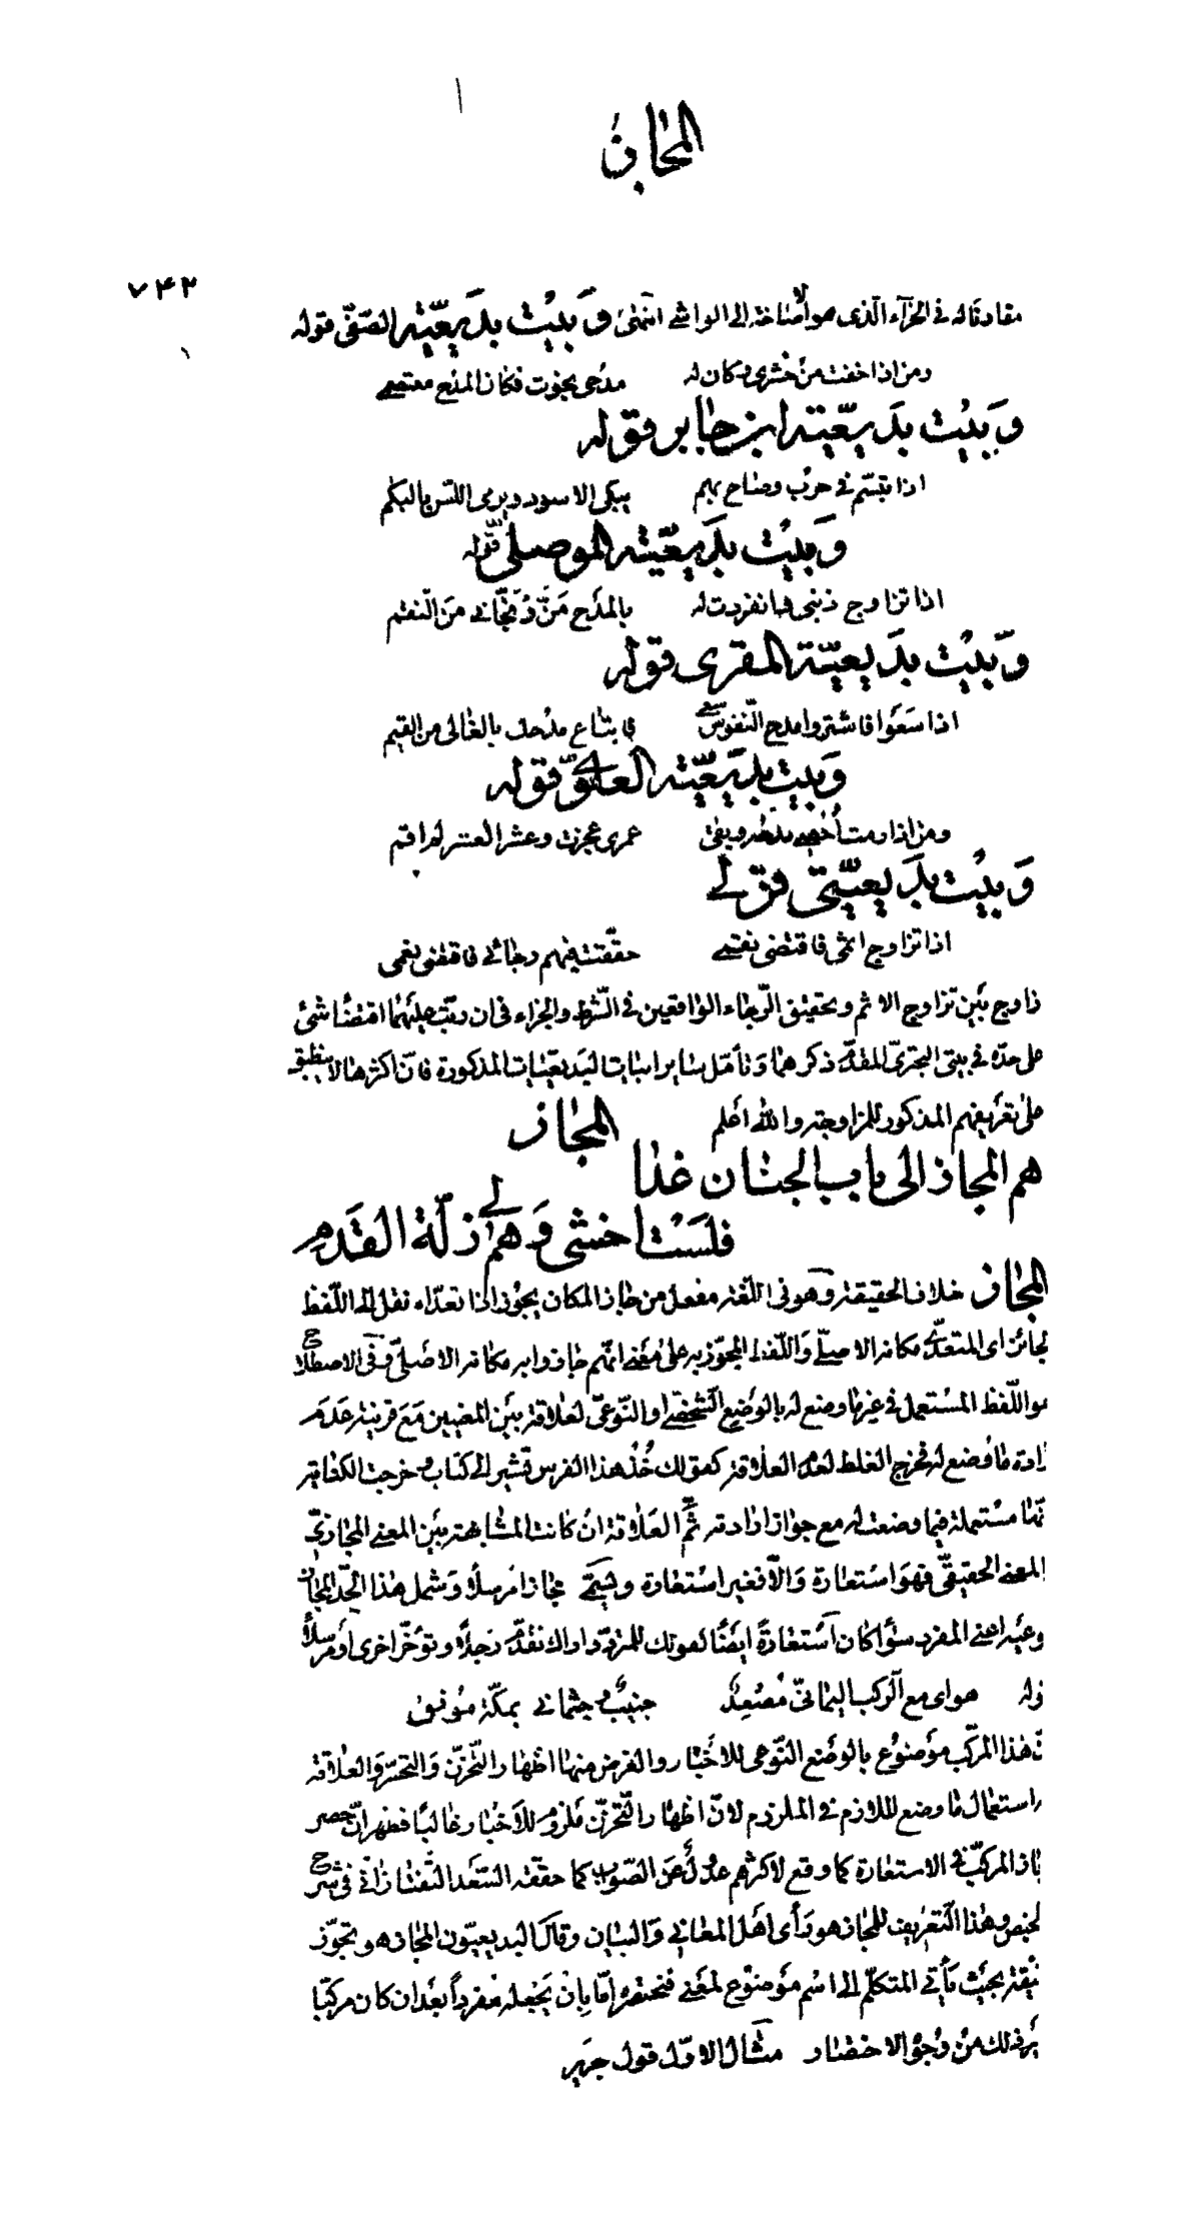 المجاز
٧٤٢
مقاد قاله في الجزآء الّذى هو أصاختها الى الواشى انتهى وَبَيْت بدَيعيّته الصّفىّ قوله
ومن اذا خفت من حشرى وكان له مدحى نجوت فكان المدح معتصمى
وَبَيْت بدَيعيّته ابن جابر قوله
اذا تبسّم فى حرب وصاح بهم يبكى الاسود ويرمى اللسن بالبكم
وَبَيْت بدَيعيّته الموصلى قوله
اذا تزاوج ذنبى وانفردت له بالمدَح مَنّ ونجّانى منَ النّقم
وَبَيْت بدَيعيّة المقرى قوله
اذا سَعَوا فاشتروا مدح النّفوس سعى فابتاع مدحك بالغالى من القيم
وَبَيت بديَعيّته العلوىّ قوله
ومن اذا رمت عمرى عجزت وعشر العشر لم اقم
وَبَيْت بدَيعيّتى قولى
اذا تزاوج اثمى فاقتضى نقمى حقّقت فيهم رجائى فاقتضى نعمى
زاوج بَين تزاوج الاثم وتحقيق الرّجاء الواقعين فى الشّرط والجزاء فى ان رتب عليهما اقتضَا شئ
على حدّه فى بيتى البحترىّ المقدّم ذكرهما وَتأمّل سائر ابيات البَديعيّات المذكورة فانّ اكثرها لا ينطبق
على تعَريفهم المذكور للمزاوجة والله اعَلم المجاز
هم المجاز الى باب الجنان غدا
فلسَت اخشى وَهم لى زلّة القَدمِ
المجاز خلاف الحقيقة وَهو فى اللّغة مفعل من جاز المكان يجوُزه اذا تعدّاه نقل الى اللّفظ
لجائز اى المتعدّى مكانه الاصلىّ وَاللّفظ المجوّز به على معَنى انّهم جازوا به مكانه الاصَلىّ وَفى الاصطلاح
هو اللّفظ المسُتعمل فى غير ما وضع له بالوَضع الشّخصى او النّوعى لعلاقة بيَن المعنيين مَع قرينة عَدَم
رادة ما وُضع له فخرج الغلط لعدم العلاقة كقولك خُذ هذا الفرس تشير الى كتاب وخرجت الكناية
نّها مسُتعملة فيما وضعت له مع جواز ارادته ثمّ العَلاقة ان كانت المشابهة بيَن المعنى المجازىّ
المعنى الحقيقىّ فهوَ استعارة وَالّا فغير استعارة ويسَمّى مجازا مرسلًا وَشمل هذا الحّد المجاز
وعيه اعنى المفرد سوآء كان آستعارةً ايضًا كقولك للمتردّد اراك تقدّم رجلًا وتؤخّر اخرى اَو مرسلًا
وله هواى مع الرّكب اليمانىّ مصعِدٌ جنيبٌ وجثمانى بمكّة مُوثق
نّ هذا المركّب موَضوُع بالوضَع النّوعى للاخَبار والغرض منها اظهار التّحزن وَالتحسّر وَالعلاقة
استعمال ما وضع للّازم فى الملزوم لانّ اظهار التّحزن ملزوم للاخَبار غالبًا فظهر انّ حصر
جاز المركبّ فى الاستعارة كما وقع لاكثرهم عدُول عَن الصّواب كما حققه السّعَد التّفتازانى فى شرح
لخيص وهذا التّعريف للمجاز هو رَأى اهَل المعانى وَالبيَان وقالَ البديعيّون المجاز هو تجوّز
قيقة بحيث يأتى المتكلّم الى اسْم موَضوُع لمعَنى فيختصره امّا باِن يَجعله مفرداً بعَد ان كان مركبّا
ير ذلك من وجُوه الاختصار مثَال الاوّل قول جرَير